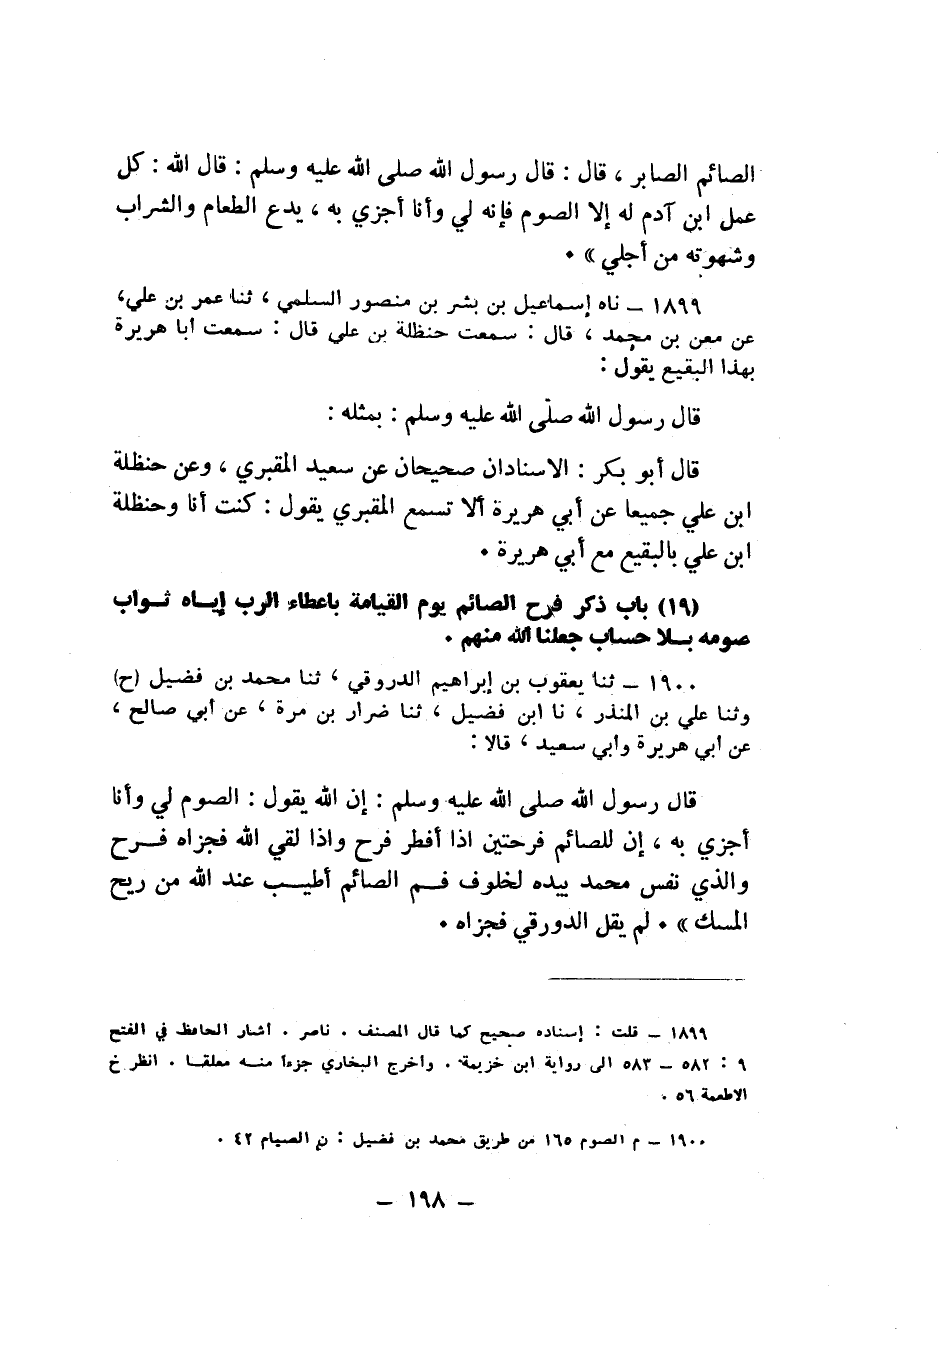 الصائم الصابر ، قال : قال رسول الله صلى الله عليه وسلم : قال الله : كل
عمل ابن آدم له إلا الصوم فإنه لي وأنا أجزي به ، يدع الطعام والشراب
وشهوته من أجلي » .
١٨٩٩ – ناه إسماعيل بن بشر بن منصور السلمي ، ثنا عمر بن علي،
عن معن بن محمد ، قال : سمعت حنظلة بن علي قال : سمعت أبا هريرة
بهذا البقيع يقول :
قال رسول الله صلّى الله عليه وسلم : بمثله :
قال أبو بكر : الاسنادان صحيحان عن سعيد المقبري ، وعن حنظلة
ابن علي جميعا عن أبي هريرة ألا تسمع المقبري يقول : كنت أنا وحنظلة
ابن علي بالبقيع مع أبي هريرة .
(١٩) باب ذكر فرح الصائم يوم القيامة باعطاء الرب إيـاه ثـواب
صومه بـلا حساب جعلنا الله منهم .
١٩٠٠ – ثنا يعقوب بن إبراهيم الدروقي ، ثنا محمد بن فضيل (ح)
وثنا علي بن المنذر ، نا ابن فضيل ، ثنا ضرار بن مرة ، عن أبي صالح ،
عن أبي هريرة وأبي سعيد ، قالا :
قال رسول الله صلى الله عليه وسلم : إن الله يقول : الصوم لي وأنا
أجزي به ، إن للصائم فرحتين اذا أفطر فرح واذا لقي الله فجزاه فـرح
والذي نفس محمد بيده لخلوف فـم الصائم أطيـب عند الله من ريح
المسك » . لم يقل الدورقي فجزاه .
١٨٩٩ – قلت : إسناده صحيح كما قال المصنف . ناصر . أشار الحافظ في الفتح
٩ : ٥٨٢ – ٥٨٣ الى رواية ابن خزيمة . وأخرج البخاري جزءاً منـه معلقـا . انظر خ
الاطعمة ٥٦ .
١٩٠٠ – م الصوم ١٦٥ من طريق محمد بن فضيل : ن الصيام ٤٢ .
– ١٩٨ –